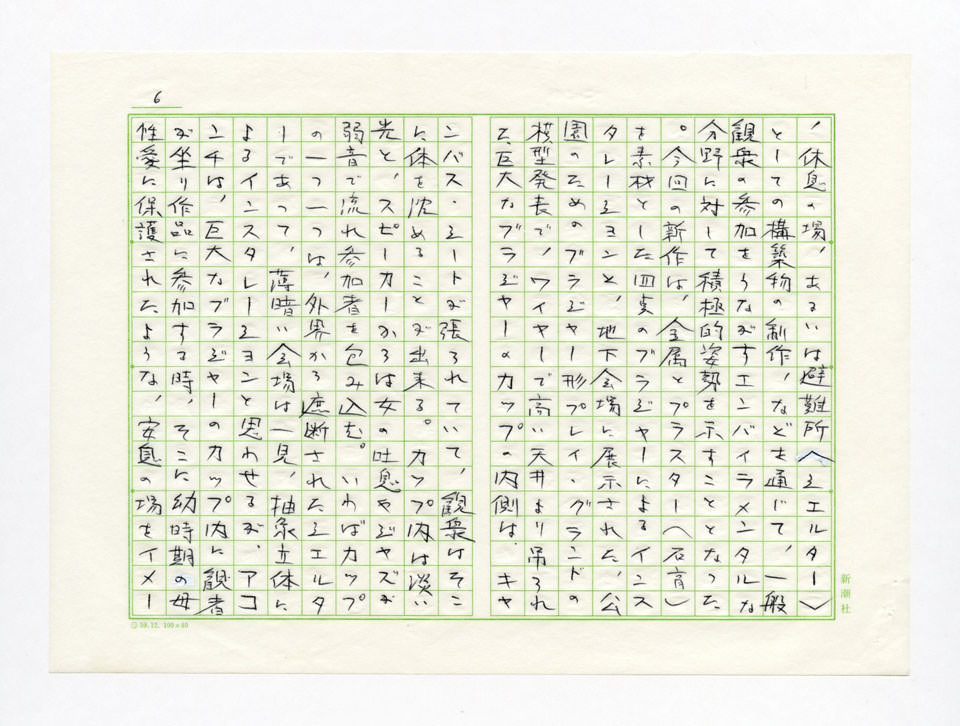 6
、休息の場、あるいは避難所〈シエルター〉
としての構築物の制作、などを通じて、一般
観衆の参加をうながすエンバイラメンタルな
分野に対して積極的姿勢を示すこととなった
。今回の新作は、金属とプラスター〈石膏〉
を素材とした四点のブラジャーによるインス
タレーションと、地下会場に展示された、公
園のためのブラジャー形プレイ・グランドの
模型発表で、ワイヤーで高い天井より吊られ
た、巨大なブラジャーのカップの内側は、キャ
ンバス・シートが張られていて、観衆はそこ
に体を沈めることが出来る。カップ内は淡い
光と、スピーカーからは女の吐息やジャズが
弱音で流れ参加者を包み込む。いわばカップ
の一つ一つは、外界から遮断されたシエルタ
ーであって、薄暗い会場は一見、抽象立体に
よるインスタレーションと思わせるが、アコ
ンチは、巨大なブラジャーのカップ内に観者
が坐り作品に参加する時、そこに幼時期の母
性愛に保護されたような、安息の場をイメー
新潮社
59.12. 100×40